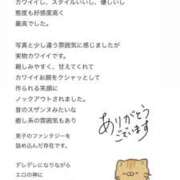 カワイイし、スタイルいいし、優しいし
態度も好感度高く
最高でした。
写真と少し違う雰囲気に感じましたが
実物カワイイです。
親しみやすく、甘えてくれて
カワイイお顔をクシャッとして
作られる笑顔に
ノックアウトされました。
昔のスザンヌみたいな
癒し系の雰囲気もあり
男子のファンタジーを
詰め込んだ存在です。
デレデレになりながら
エロの神に
ありがとう
ございます